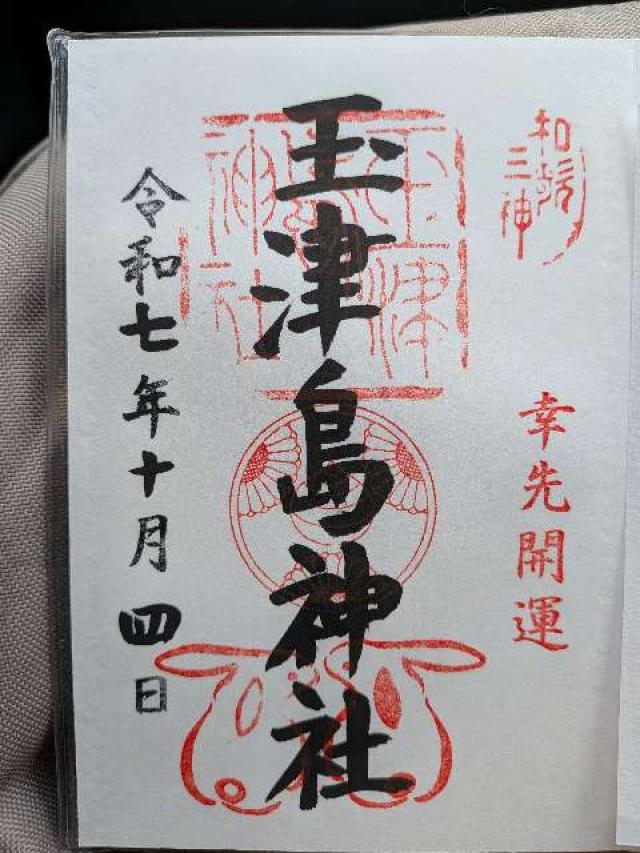 和歌三神
幸先開運
玉津島神社
玉津島神社
令和七年十月四日